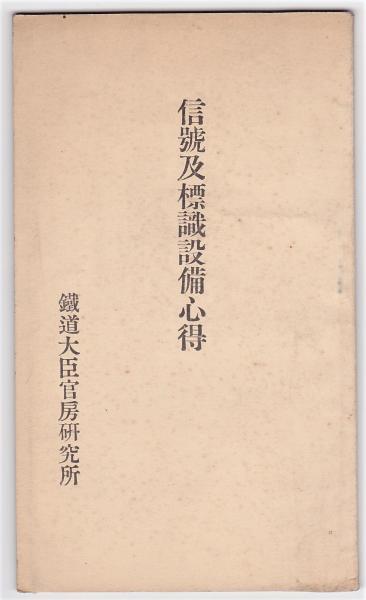 信號及標識設備心得
鐵道大臣官房硏究所